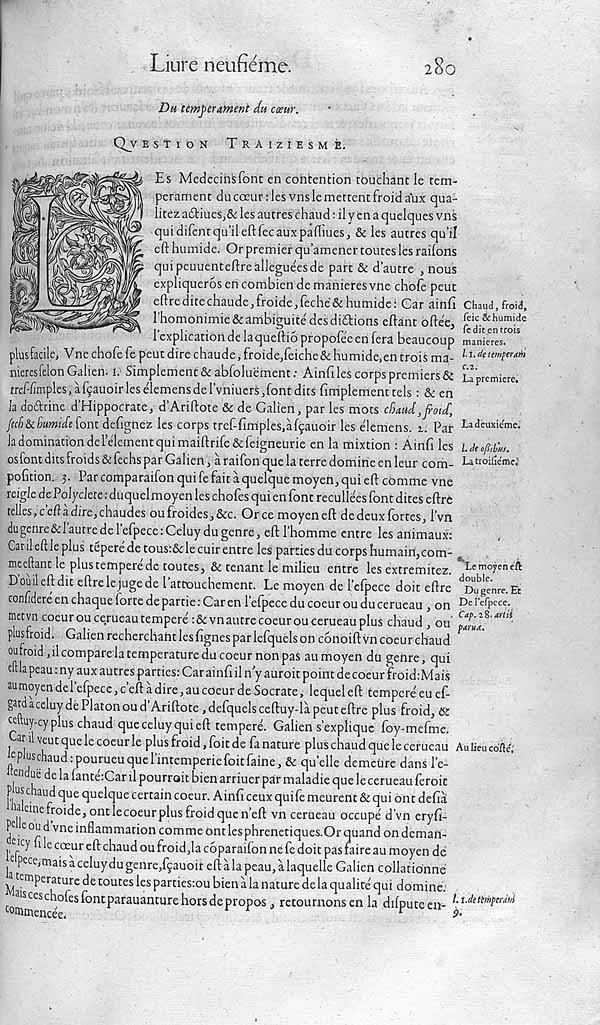 Liure neufiéme.
280
Du temperament du cœur.
QVESTION TRAIZIESME.
LEs Medecins ſont en contention touchant le tem-
perament du cœur: les vns le mettent froid aux qua-
litez actiues, & les autres chaud: il y en a quelques vns
qui diſent qu'il eſt ſec aux paſſiues, & les autres qu'il
eſt humide. Or premier qu'amener toutes les raiſons
qui peuuent eſtre alleguées de part & d'autre, nous
expliquerõs en combien de manieres vne choſe peut
eſtre dite chaude, froide, ſeche & humide: Car ainſi
l'homonimie & ambiguité des dictions eſtant oſtée,
l'explication de la queſtiõ propoſée en ſera beaucoup
plus facile, Vne choſe ſe peut dire chaude, froide, ſeiche & humide, en trois ma-
nieres ſelon Galien. 1. Simplement & abſoluëment: Ainſi les corps premiers &
treſ-ſimples, à ſçauoir les élemens de l'vniuers, ſont dits ſimplement tels: & en
la doctrine d'Hippocrate, d'Ariſtote & de Galien, par les mots chaud, froid,
ſech & humide ſont deſignez les corps treſ-ſimples, à ſçauoir les élemens. 2. Par
la domination de l'élement qui maiſtriſe & ſeigneurie en la mixtion: Ainſi les
os ſont dits froids & ſechs par Galien, à raiſon que la terre domine en leur com-
poſition. 3. Par comparaiſon qui ſe fait à quelque moyen, qui eſt comme vne
reigle de Polyclete: duquel moyen les choſes qui en ſont recullées ſont dites eſtre
telles, c'eſt à dire, chaudes ou froides, &c. Or ce moyen eſt de deux ſortes, l'vn
du genre & l'autre de l'eſpece: Celuy du genre, eſt l'homme entre les animaux:
Car il eſt le plus tẽperé de tous: & le cuir entre les parties du corps humain, com-
me eſtant le plus temperé de toutes, & tenant le milieu entre les extremitez.
D'où il eſt dit eſtre le juge de l'attouchement. Le moyen de l'eſpece doit eſtre
conſideré en chaque ſorte de partie: Car en l'eſpece du coeur ou du cerueau, on
met vn coeur ou cerueau temperé: & vn autre coeur ou cerueau plus chaud, ou
plus froid. Galien recherchant les ſignes par leſquels on cõnoiſt vn coeur chaud
ou froid, il compare la temperature du coeur non pas au moyen du genre, qui
eſt la peau: ny aux autres parties: Car ainſi il n'y auroit point de coeur froid: Mais
au moyen de l'eſpece, c'eſt à dire, au coeur de Socrate, lequel eſt temperé eu eſ-
gard à celuy de Platon ou d'Ariſtote, deſquels ceſtuy-là peut eſtre plus froid, &
ceſtuy-cy plus chaud que celuy qui eſt temperé. Galien s'explique ſoy-meſme.
Car il veut que le coeur le plus froid, ſoit de ſa nature plus chaud que le cerueau
le plus chaud: pourueu que l'intemperie ſoit ſaine, & qu'elle demeure dans l'e-
ſtenduë de la ſanté: Car il pourroit bien arriuer par maladie que le cerueau ſeroit
plus chaud que quelque certain coeur. Ainſi ceux qui ſe meurent & qui ont deſià
l'haleine froide, ont le coeur plus froid que n'eſt vn cerueau occupé d'vn eryſi-
pelle ou d'vne inflammation comme ont les phrenetiques. Or quand on deman-
de icy ſi le cœur eſt chaud ou froid, la cõparaiſon ne ſe doit pas faire au moyen de
l'eſpece, mais à celuy du genre, ſçauoir eſt à la peau, à laquelle Galien collationne
la temperature de toutes les parties: ou bien à la nature de la qualité qui domine.
Mais ces choſes ſont parauanture hors de propos, retournons en la diſpute en-
commencée.
Chaud, froid,
ſeic & humide
ſe dit en trois
manieres.
l. 1. de temperam
c. 2.
La premiere.
La deuxiéme.
L. de oſsibus.
La troiſiéme.
Le moyen eſt
double.
Du genre. Et
De l'eſpece.
Cap. 28. artis
paruæ.
Au lieu coſté.
l. 1. de temperam
9.